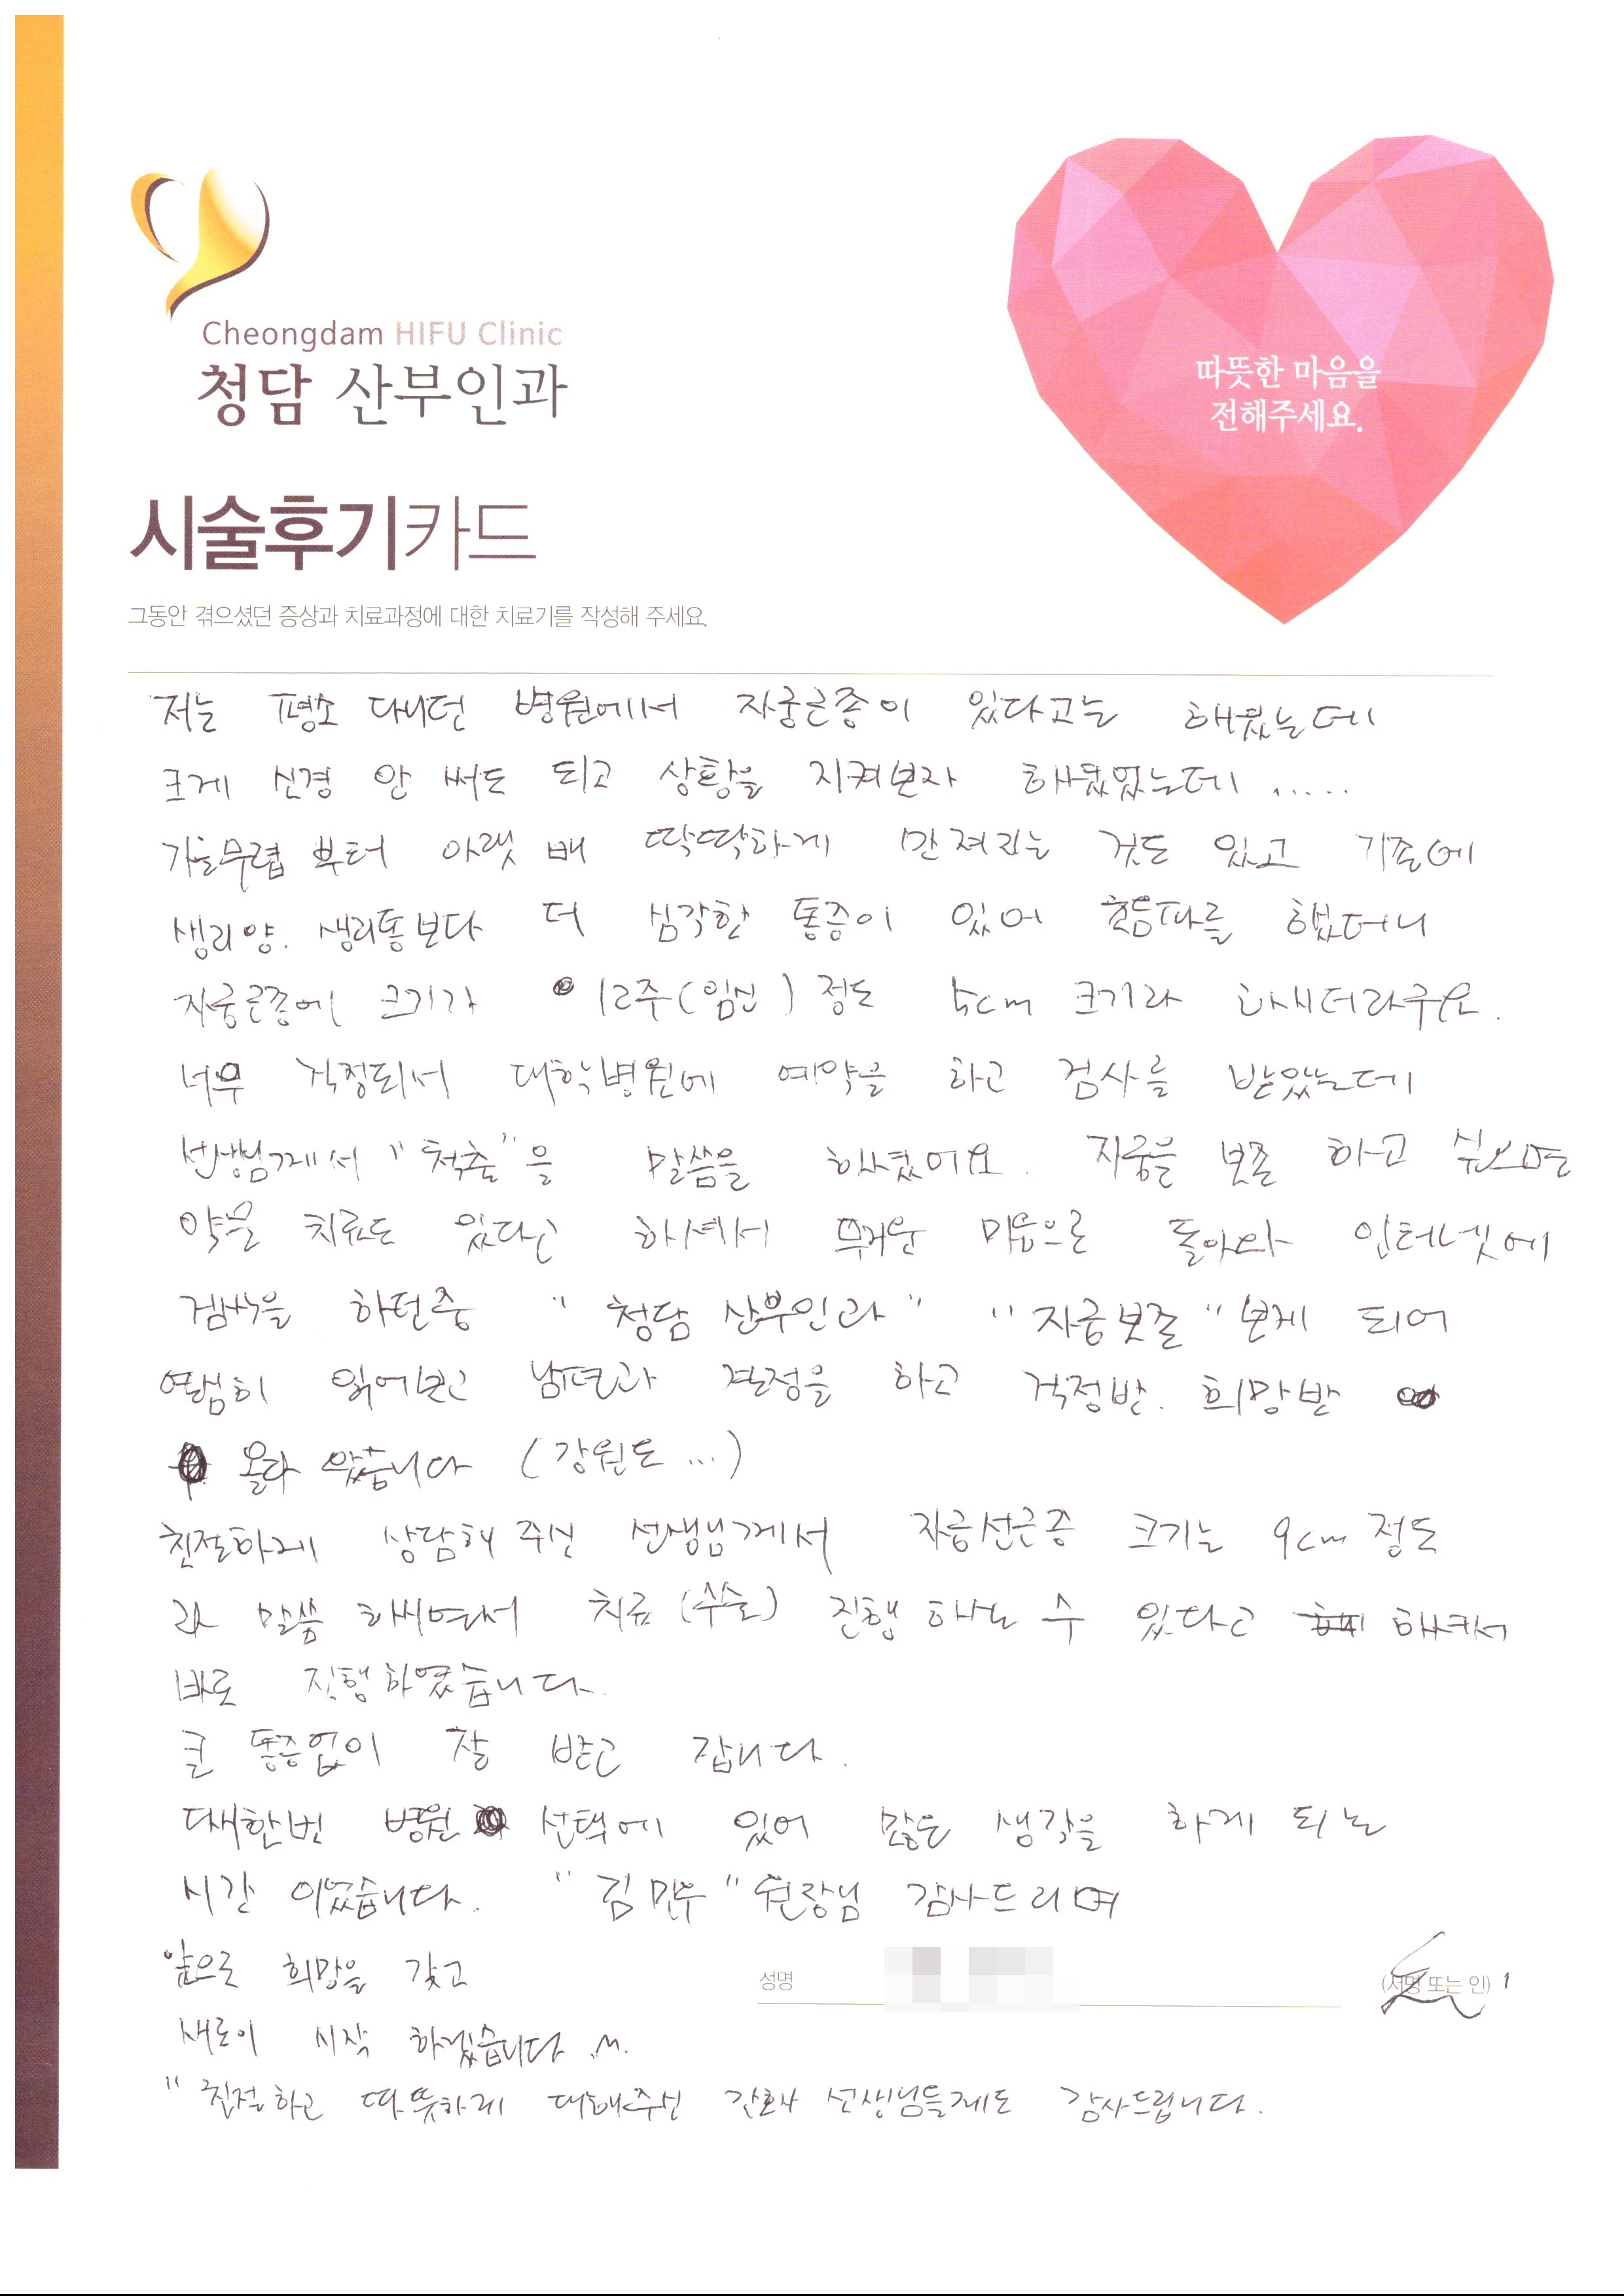 Cheongdam HIFU Clinic
청담 산부인과
따뜻한 마음을
전해주세요.
시술후기카드
그동안 겪으셨던 증상과 치료과정에 대한 치료기를 작성해 주세요.
저는 평소 다니던 병원에서 자궁근종이 있다고는 해왔는데
크게 신경 안 써도 되고 상황을 지켜보자 해왔었는데 .....
가을무렵 부터 아랫 배 딱딱하게 만져지는 것도 있고 기존에
생리양. 생리통보다 더 심각한 통증이 있어 초음파를 했더니
자궁근종에 크기가 12주(임신) 정도 5cm 크기라 하시더라구요.
너무 걱정되서 대학병원에 예약을 하고 검사를 받았는데
선생님께서 "적출"을 말씀을 하셨어요. 자궁을 보존 하고 싶으면
약물 치료도 있다고 하셔서 무거운 마음으로 돌아와 인터넷에
검색을 하던중 "청담 산부인과" "자궁보존" 보게 되어
열심히 읽어보고 남편과 결정을 하고 걱정반. 희망반
올라 왔습니다 (강원도 ...)
친절하게 상담해 주신 선생님께서 자궁선근증 크기는 9cm 정도
라 말씀 하시면서 치료(수술) 진행 하는 수 있다고 하셔서
바로 진행하였습니다.
큰 통증없이 잘 받고 갑니다.
다시한번 병원 선택에 있어 많은 생각을 하게 되는
시간 이었습니다. "김민우"원장님 감사드리며
앞으로 희망을 갖고
성명
(서명 또는 인)
새로이 시작 하겠습니다
" 친절하고 따뜻하게 대해주신 간호사 선생님들께도 감사드립니다.